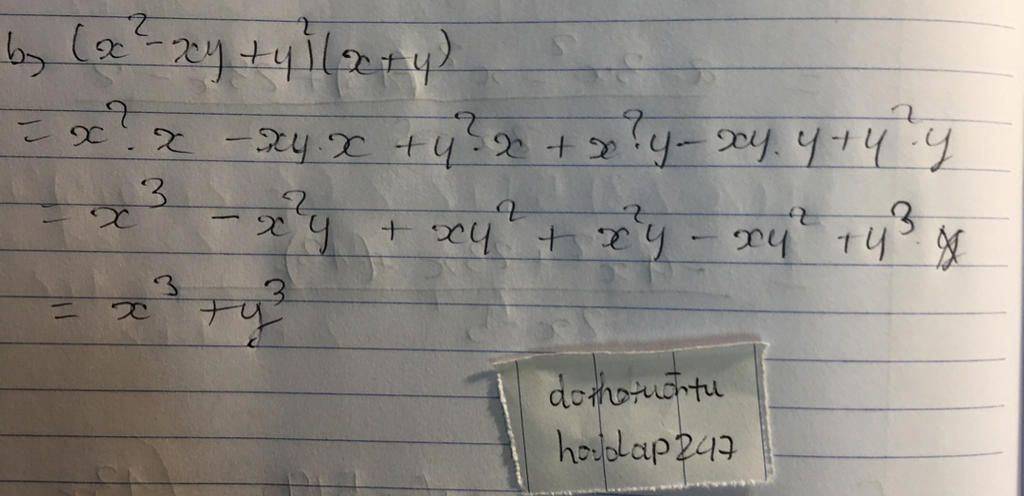 b, (x²-xy+y²)(x+y)
= x².x -xy.x +y².x + x²y- xy.y+y².y
= x³ - x²y + xy² + x²y - xy² +y³.
= x³ +y³
hoidap247